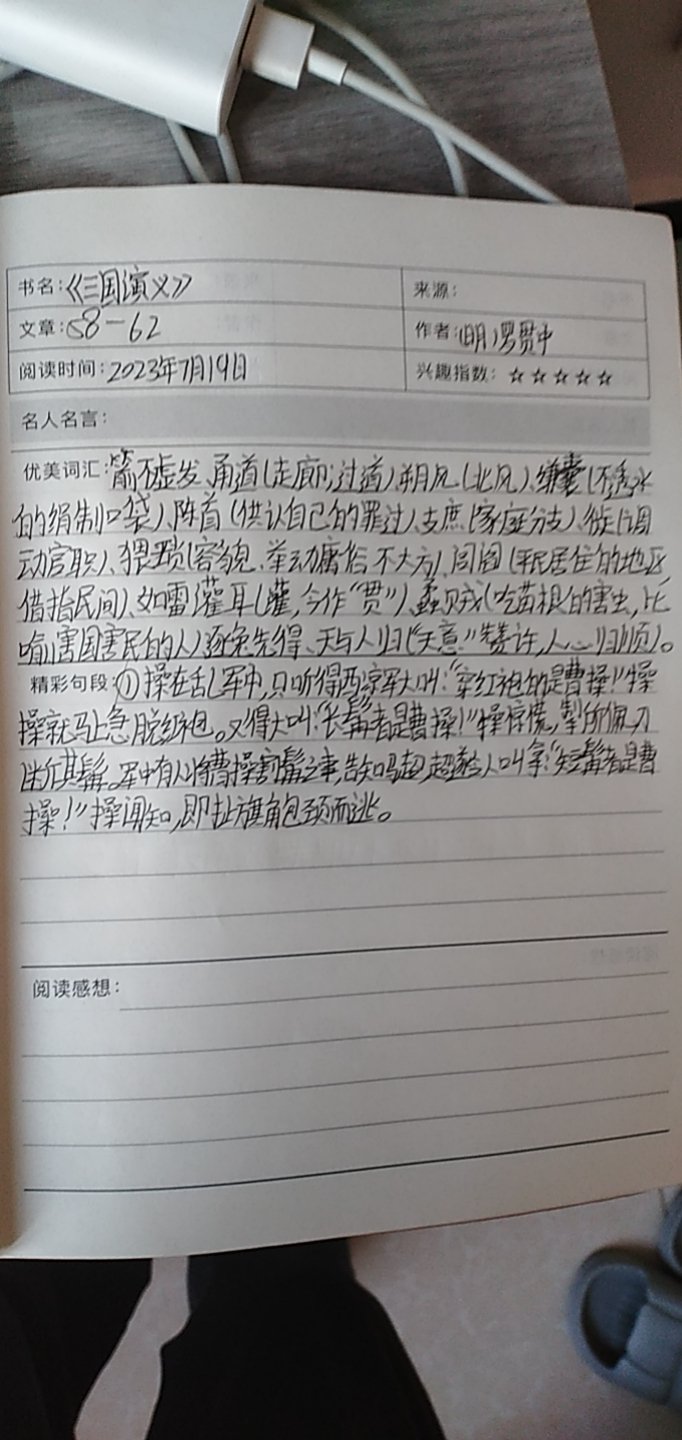 书名:《三国演义》 来源:
文章:58-62 作者:(明)罗贯中
阅读时间:2023年7月19日 兴趣指数:☆☆☆☆☆
名人名言:
优美词汇:箭不虚发、甬道(走廊;过道)、朔风(北风)、缣囊(不透水
的绢制口袋)、陈首(供认自己的罪过)、支庶(家庭分支)、徙(调
动官职)、猥琐(容貌、举动庸俗不大方)、闾阎(平民居住的地区
借指民间)、如雷灌耳(灌,今作“贯”)、蠡贼(吃苗根的害虫,比
喻害国害民的人)、逐兔先得、天与人归(“天意”赞许,人心归顺)。
精彩句段:①操在乱军中,只听得西凉军大叫:“穿红袍的是曹操!”操
操就马上急脱红袍。又得大叫:“长髯者是曹操!”操惊慌,掣所佩刀
断其髯。军中有人将曹操割髯之事,告知马超,超遂令人叫拿:“短髯者是曹
操!”操闻知,即扯旗角包颈而逃。
阅读感想: